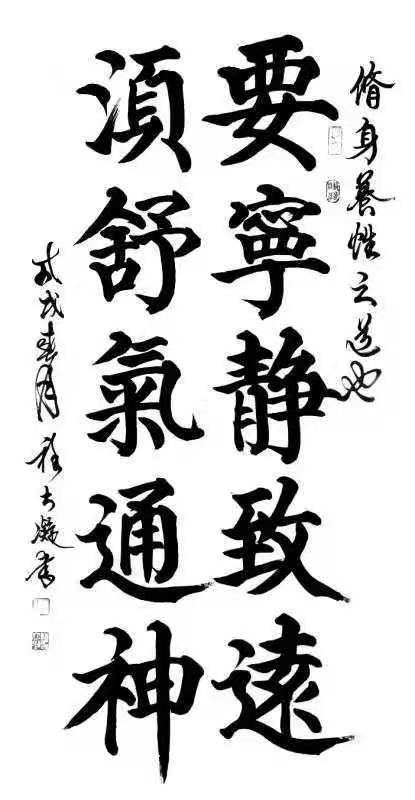 脩身養性之道也
要寧静致遠
湏舒氣通神
戊戌春月書